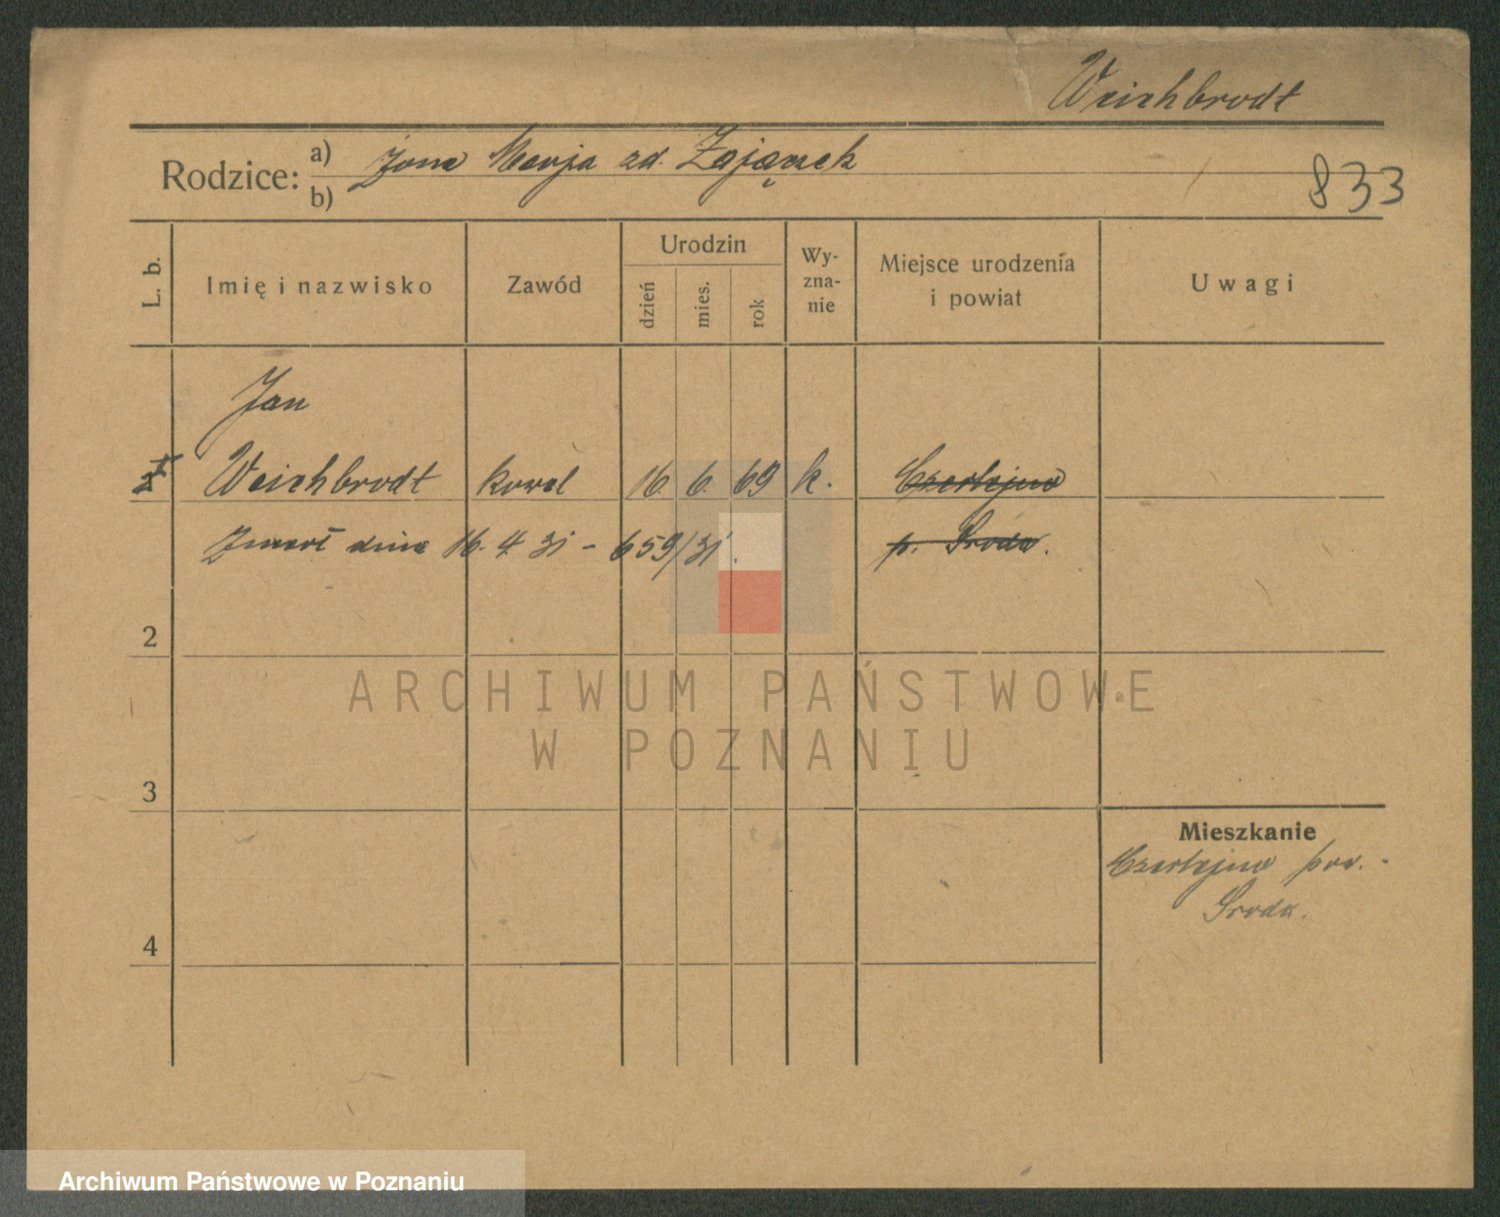 Weichbrodt
Rodzice: a) Żona Marja zd. Zajączek
b)
833
L. b. Imię i nazwisko Zawód Urodzin dzień mies. rok Wy-zna-nie Miejsce urodzenia i powiat Uwagi
Jan
1 Weichbrodt kowal 16. 6. 69 k. Czerlejno
Zmarł dnia 16.4.31 - 659/31. p. Środa.
2
3
4
Mieszkanie
Czerlejno pow.
Środa.
ARCHIWUM PAŃSTWOWE
W POZNANIU
Archiwum Państwowe w Poznaniu